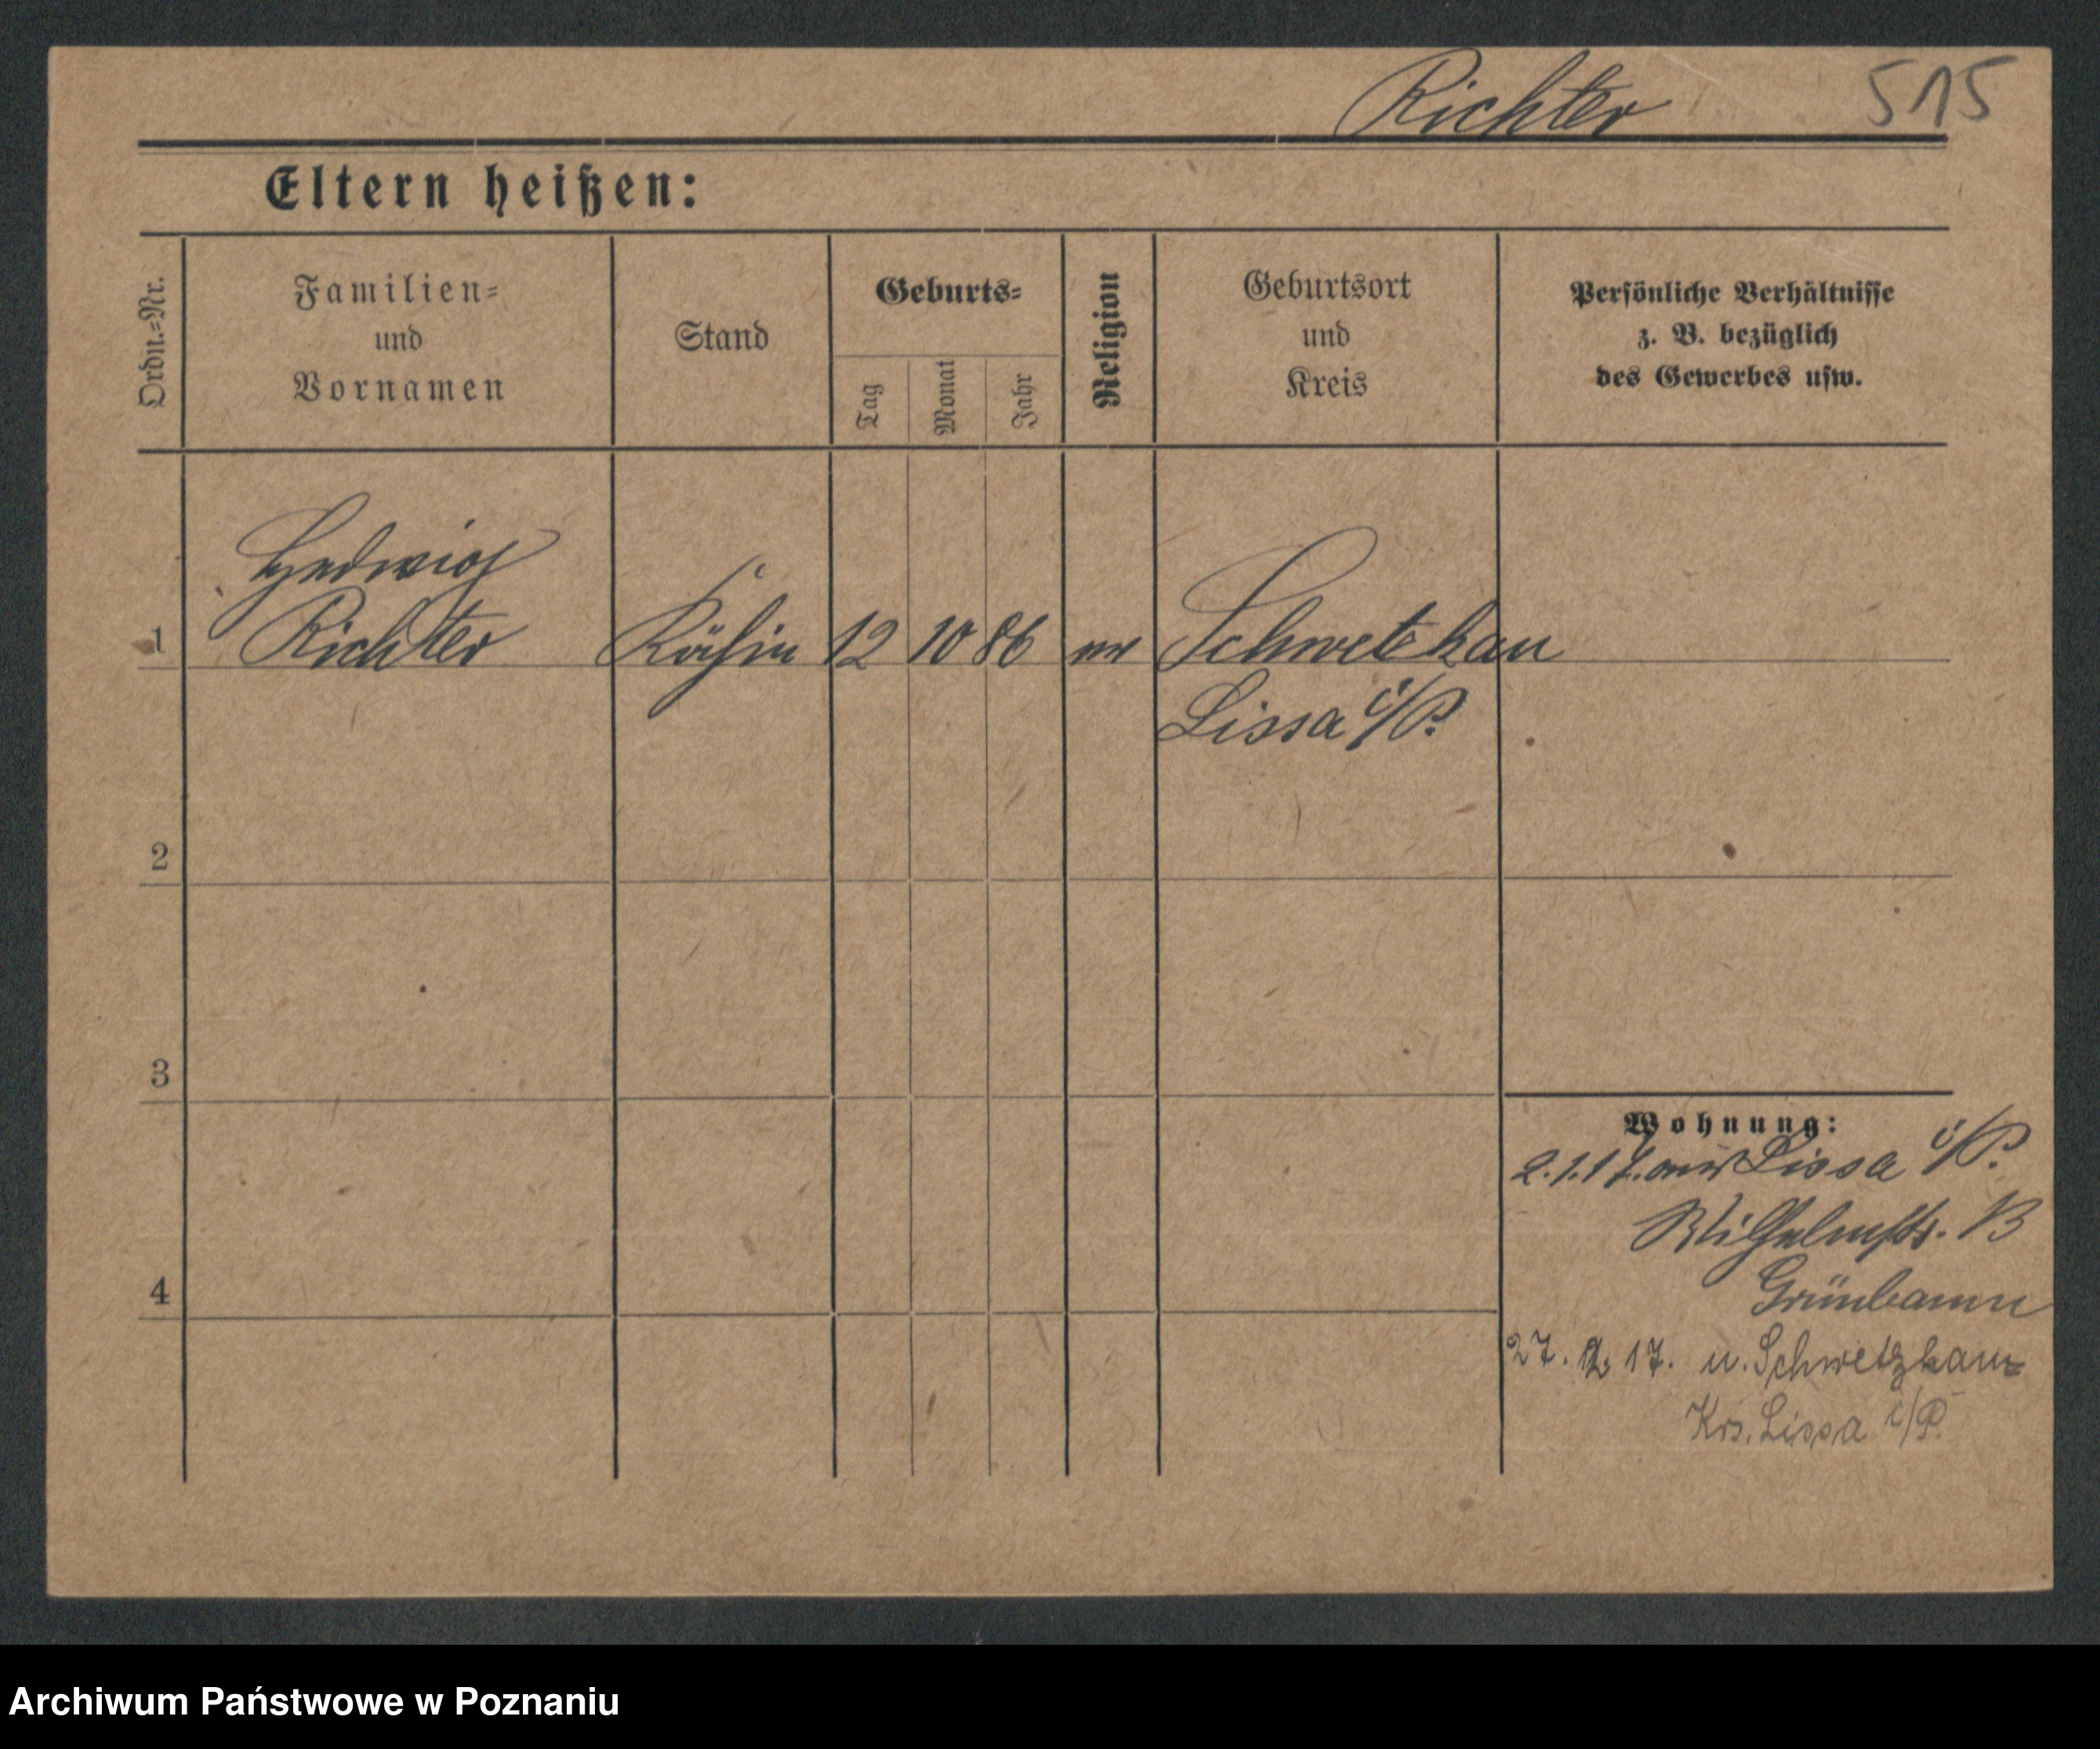 Richter 515
Eltern heißen:
Ordn.=Nr.
Familien=
und
Vornamen
Stand
Geburts=
Tag
Monat
Jahr
Religion
Geburtsort
und
Kreis
Persönliche Verhältnisse
z. B. bezüglich
des Gewerbes usw.
Hedwig
1 Richter Köchin 12 10 86 ev Schwetzkau
Lissa i/P.
2
3
4
Wohnung:
2.1.17. aus Lissa i/P.
Wilhelmstr. 13
Grünbaum
27. 12. 17. n. Schwetzkau
Krs. Lissa i/P.
Archiwum Państwowe w Poznaniu